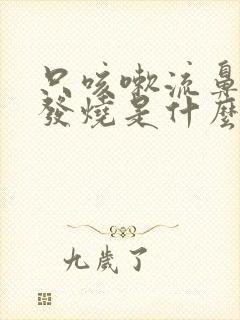 只咳嗽流鼻
發燒是什麼
九歲了